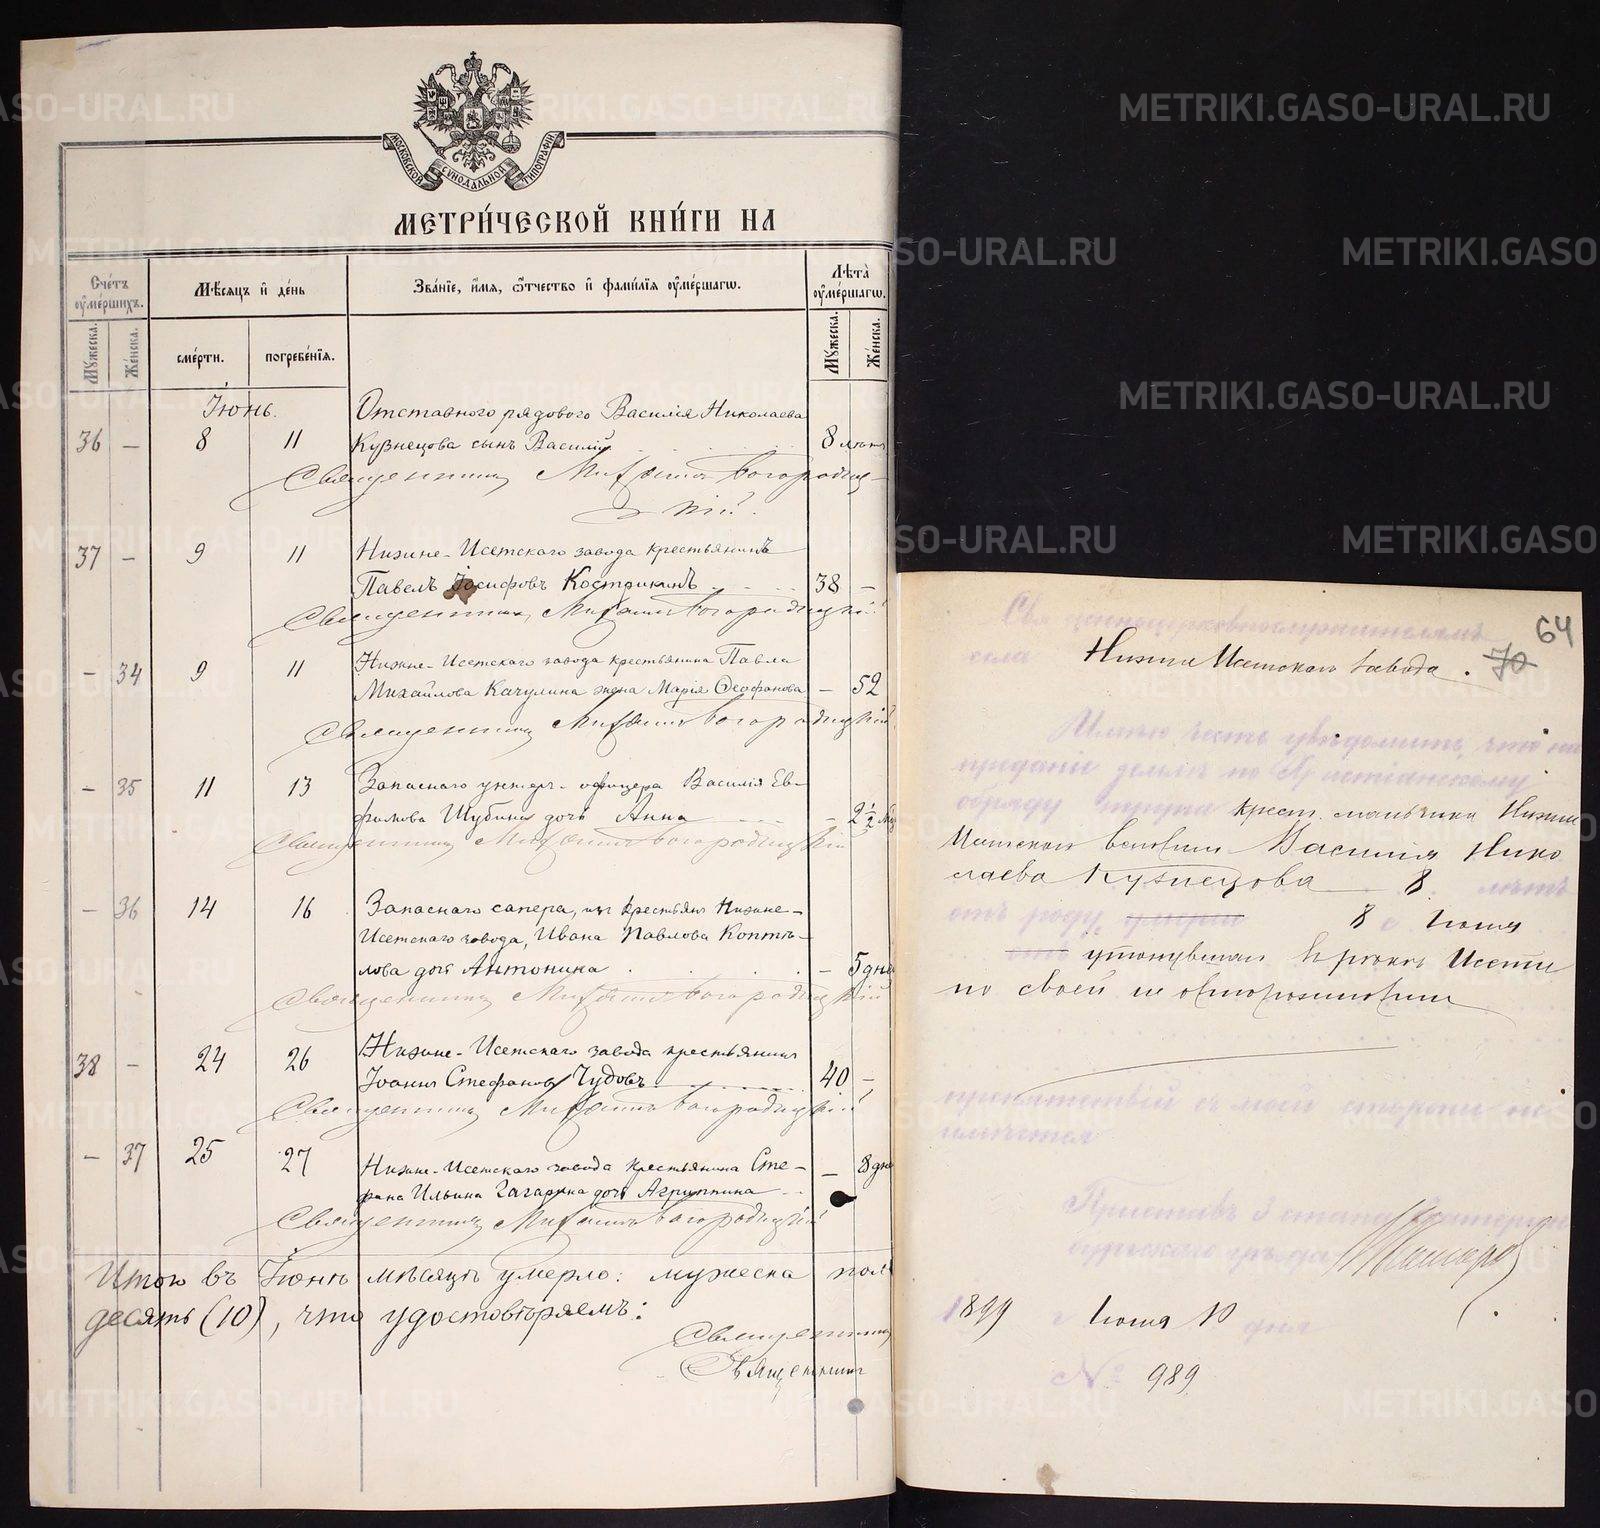 МОСКОВСКОЙ СУНОДАЛЬНОЙ ТИПОГРАФІИ
МЕТРИ́ЧЕСКОЙ КНИ́ГИ НА
Сче́тъ оу҆ме́ршихъ.
Мѣ́сяцъ и҆ де́нь
Зва́нїе, и҆́мя, ѻ҆́тчество и҆ фами́лїя оу҆ме́ршагѡ.
Лѣ́та оу҆ме́ршагѡ.
Мꙋ́жеска.
Же́нска.
сме́рти.
погребе́нїя.
Мꙋ́жеска.
Же́нска.
Іюнь.
Отставного рядового Василія Николаева
36 — 8 11 Кузнецова сынъ Василій 8 лѣтъ
Священникъ Михаилъ Богородиц-
кій.
37 — 9 11 Нижне-Исетскаго завода крестьянинъ
Павелъ Іосифовъ Костаикинъ 38 —
Священникъ Михаилъ Богородицкій
— 34 9 11 Нижне-Исетскаго завода крестьянина Павла
Михайлова Качулина жена Марія Ѳеофанова — 52
Священникъ Михаилъ Богородицкій
— 35 11 13 Запаснаго унтеръ-офицера Василія Ев-
фимова Шубина дочь Анна — 2½
Священникъ Михаилъ Богородицкій
— 36 14 16 Запаснаго сапера, изъ крестьянъ Нижне-
Исетскаго завода, Ивана Павлова Коптѣ-
лова дочь Антонина — 5 дней
Священникъ Михаилъ Богородицкій
38 — 24 26 Нижне-Исетскаго завода крестьянинъ
Іоаннъ Стефановъ Чудовъ 40 —
Священникъ Михаилъ Богородицкій
— 37 25 27 Нижне-Исетскаго завода крестьянина Сте-
фана Ильина Гагарина дочь Агриппина — 8 дне
Священникъ Михаилъ Богородицкій
Итого въ Іюнѣ мѣсяцѣ умерло: мужеска пола
десять (10), что удостовѣряемъ:
Священникъ
Священникъ
64
Священноцерковнослужителямъ
села Нижне Исетскаго завода. 70
Имѣю честь увѣдомить, что на
преданіе землѣ по Христіанскому
обряду трупа крест. мальчика Нижне
Исетской волости Василія Нико
лаева Кузнецова 8 лѣтъ
отъ роду, умерш 8 с Іюня
отъ утонувшаго въ рѣкѣ Исети
по своей неосторожности
препятствій съ моей стороны не
имѣется
Приставъ 3 стана Екатерин
бургскаго уѣзда
1899 г Іюня 10 дня
№ 989
METRIKI.GASO-URAL.RU